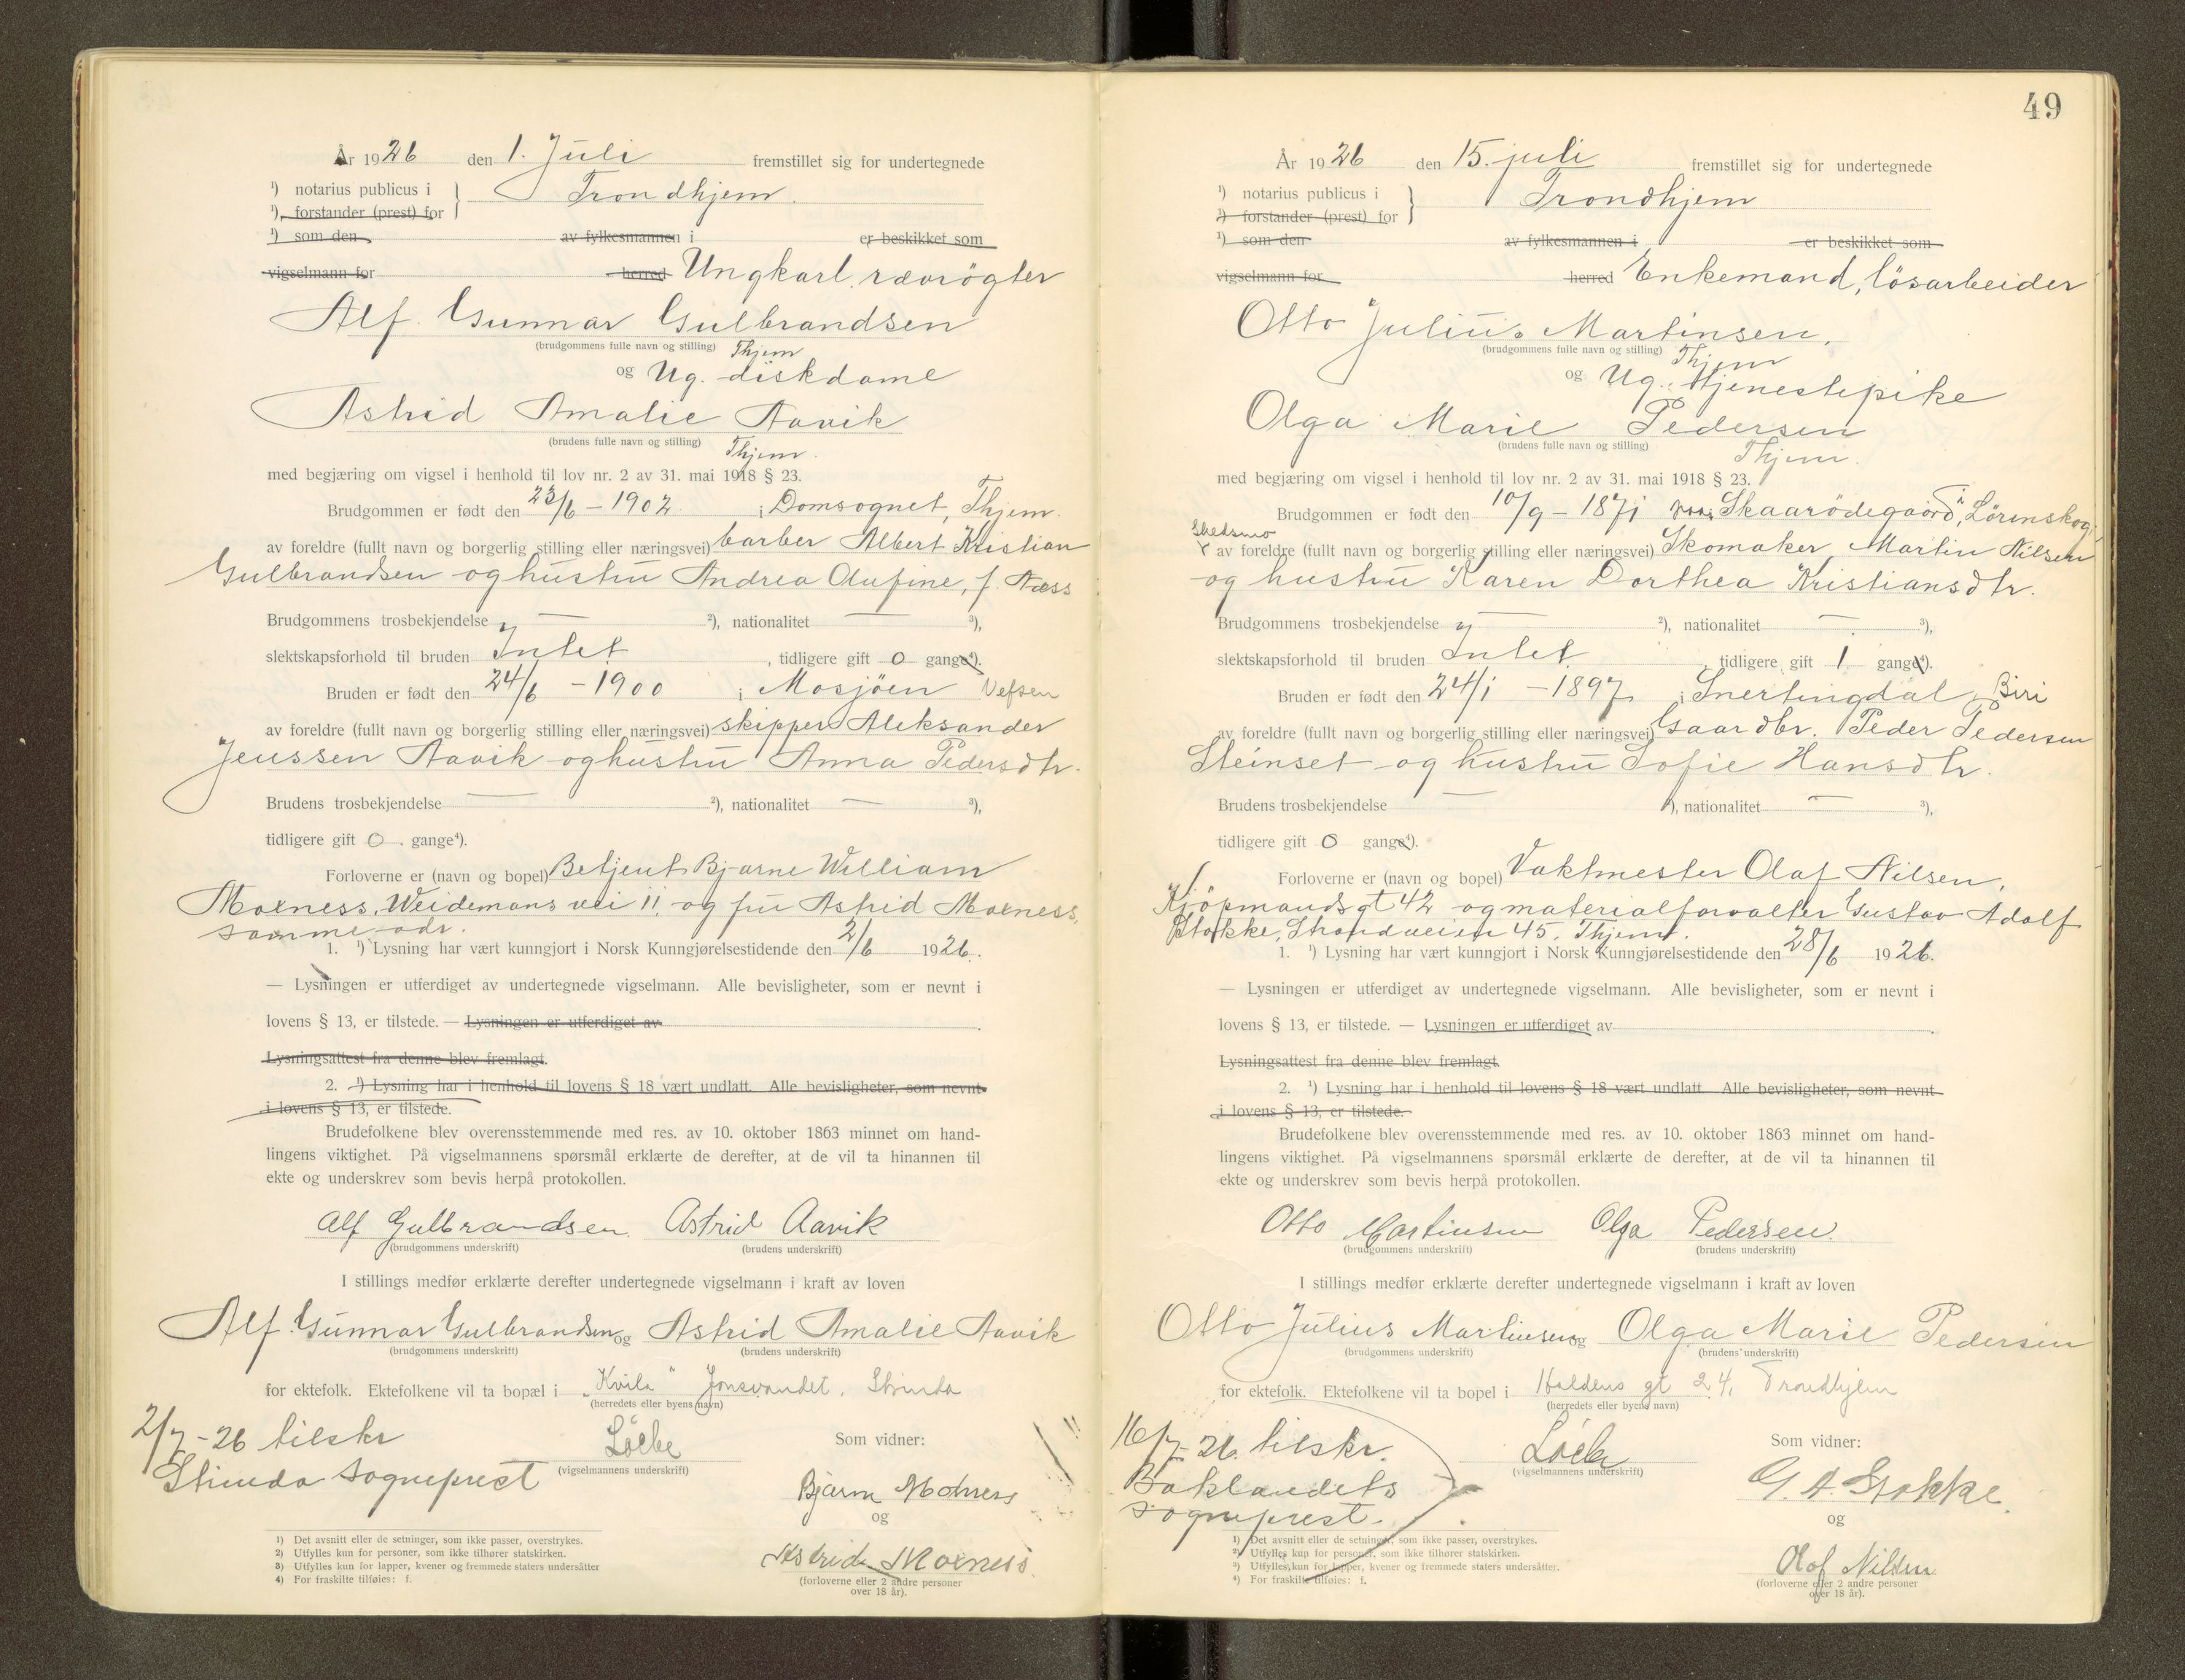 År 1926 den 1. Juli fremstillet sig for undertegnede
¹) notarius publicus i } Trondhjem.
¹) forstander (prest) for
¹) som den av fylkesmannen i er beskikket som
vigselmann for herred Ungkarl, rævrögter
Alf Gunnar Gulbrandsen
(brudgommens fulle navn og stilling) Thjem
og Ug. diskdame
Astrid Amalie Aavik
(brudens fulle navn og stilling) Thjem.
med begjæring om vigsel i henhold til lov nr. 2 av 31. mai 1918 § 23.
Brudgommen er født den 23/6 - 1902 i Domsognet, Thjem.
av foreldre (fullt navn og borgerlig stilling eller næringsvei) barber Albert Kristian
Gulbrandsen og hustru Andrea Olufine, f. Næss
Brudgommens trosbekjendelse — ²), nationalitet — ³),
slektskapsforhold til bruden Intet, tidligere gift 0 gange⁴).
Bruden er født den 24/6 - 1900 i Mosjöen Vefsen
av foreldre (fullt navn og borgerlig stilling eller næringsvei) skipper Aleksander
Jenssen Aavik og hustru Anna Pedersdtr.
Brudens trosbekjendelse — ²), nationalitet — ³),
tidligere gift 0 gange⁴).
Forloverne er (navn og bopel) Betjent Bjarne William
Moxness, Weidemans vei 11, og fru Astrid Moxness,
samme adr.
1. ¹) Lysning har vært kunngjort i Norsk Kunngjørelsestidende den 2/6 1926.
— Lysningen er utferdiget av undertegnede vigselmann. Alle bevisligheter, som er nevnt i
lovens § 13, er tilstede. — Lysningen er utferdiget av
Lysningsattest fra denne blev fremlagt.
2. ¹) Lysning har i henhold til lovens § 18 vært undlatt. Alle bevisligheter, som nevnt
i lovens § 13, er tilstede.
Brudefolkene blev overensstemmende med res. av 10. oktober 1863 minnet om hand-
lingens viktighet. På vigselmannens spørsmål erklærte de derefter, at de vil ta hinannen til
ekte og underskrev som bevis herpå protokollen.
Alf Gulbrandsen Astrid Aavik
(brudgommens underskrift) (brudens underskrift)
I stillings medfør erklærte derefter undertegnede vigselmann i kraft av loven
Alf Gunnar Gulbrandsen og Astrid Amalie Aavik
(brudgommens underskrift) (brudens underskrift)
for ektefolk. Ektefolkene vil ta bopæl i "Kvila" Jonsvandet, Strinda
(herredets eller byens navn)
2/7 - 26 tilskr
Strinda sogneprest
(vigselmannens underskrift)
Som vidner:
Bjarne Moxness
og
Astrid Moxness.
(forloverne eller 2 andre personer
over 18 år).
1) Det avsnitt eller de setninger, som ikke passer, overstrykes.
2) Utfylles kun for personer, som ikke tilhører statskirken.
3) Utfylles kun for lapper, kvener og fremmede staters undersåtter
4) For fraskilte tilføies: f.
49
År 1926 den 15. juli fremstillet sig for undertegnede
¹) notarius publicus i } Trondhjem
¹) forstander (prest) for
¹) som den av fylkesmannen i er beskikket som
vigselmann for herred Enkemand, lösarbeider
Otto Julius Martinsen,
(brudgommens fulle navn og stilling) Thjem
og Ug. tjenestepike
Olga Marie Pedersen
(brudens fulle navn og stilling) Thjem.
med begjæring om vigsel i henhold til lov nr. 2 av 31. mai 1918 § 23.
Brudgommen er født den 10/9 - 1871 Skaarödegaard, i Lörenskog,
Skedsmo
av foreldre (fullt navn og borgerlig stilling eller næringsvei) Skomaker Martin Nilsen
og hustru Karen Dorthea Kristiansdtr.
Brudgommens trosbekjendelse — ²), nationalitet — ³),
slektskapsforhold til bruden Intet, tidligere gift 1 gang⁴).
Bruden er født den 24/1 - 1897 i Snertingdal, Biri
av foreldre (fullt navn og borgerlig stilling eller næringsvei) Gaardbr. Peder Pedersen
Steinset og hustru Sofie Hansdtr.
Brudens trosbekjendelse — ²), nationalitet — ³),
tidligere gift 0 gange⁴).
Forloverne er (navn og bopel) Vaktmester Olaf Nilsen,
Kjöpmandsgt 42 og materialforvalter Gustav Adolf
Stokke, Strandveien 45, Thjem.
1. ¹) Lysning har vært kunngjort i Norsk Kunngjørelsestidende den 28/6 1926.
— Lysningen er utferdiget av undertegnede vigselmann. Alle bevisligheter, som er nevnt i
lovens § 13, er tilstede. — Lysningen er utferdiget av
Lysningsattest fra denne blev fremlagt.
2. ¹) Lysning har i henhold til lovens § 18 vært undlatt. Alle bevisligheter, som nevnt
i lovens § 13, er tilstede.
Brudefolkene blev overensstemmende med res. av 10. oktober 1863 minnet om hand-
lingens viktighet. På vigselmannens spørsmål erklærte de derefter, at de vil ta hinannen til
ekte og underskrev som bevis herpå protokollen.
Otto Martinsen Olga Pedersen.
(brudgommens underskrift) (brudens underskrift)
I stillings medfør erklærte derefter undertegnede vigselmann i kraft av loven
Otto Julius Martinsen og Olga Marie Pedersen
(brudgommens underskrift) (brudens underskrift)
for ektefolk. Ektefolkene vil ta bopel i Haldens gt 24, Trondhjem
(herredets eller byens navn)
16/7 - 26. tilskr.
Baklandets
sogneprest.
(vigselmannens underskrift)
Som vidner:
G. A. Stokke.
og
Olof Nilsen
(forloverne eller 2 andre personer
over 18 år).
1) Det avsnitt eller de setninger, som ikke passer, overstrykes.
2) Utfylles kun for personer, som ikke tilhører statskirken.
3) Utfylles kun for lapper, kvener og fremmede staters undersåtter.
4) For fraskilte tilføies: f.